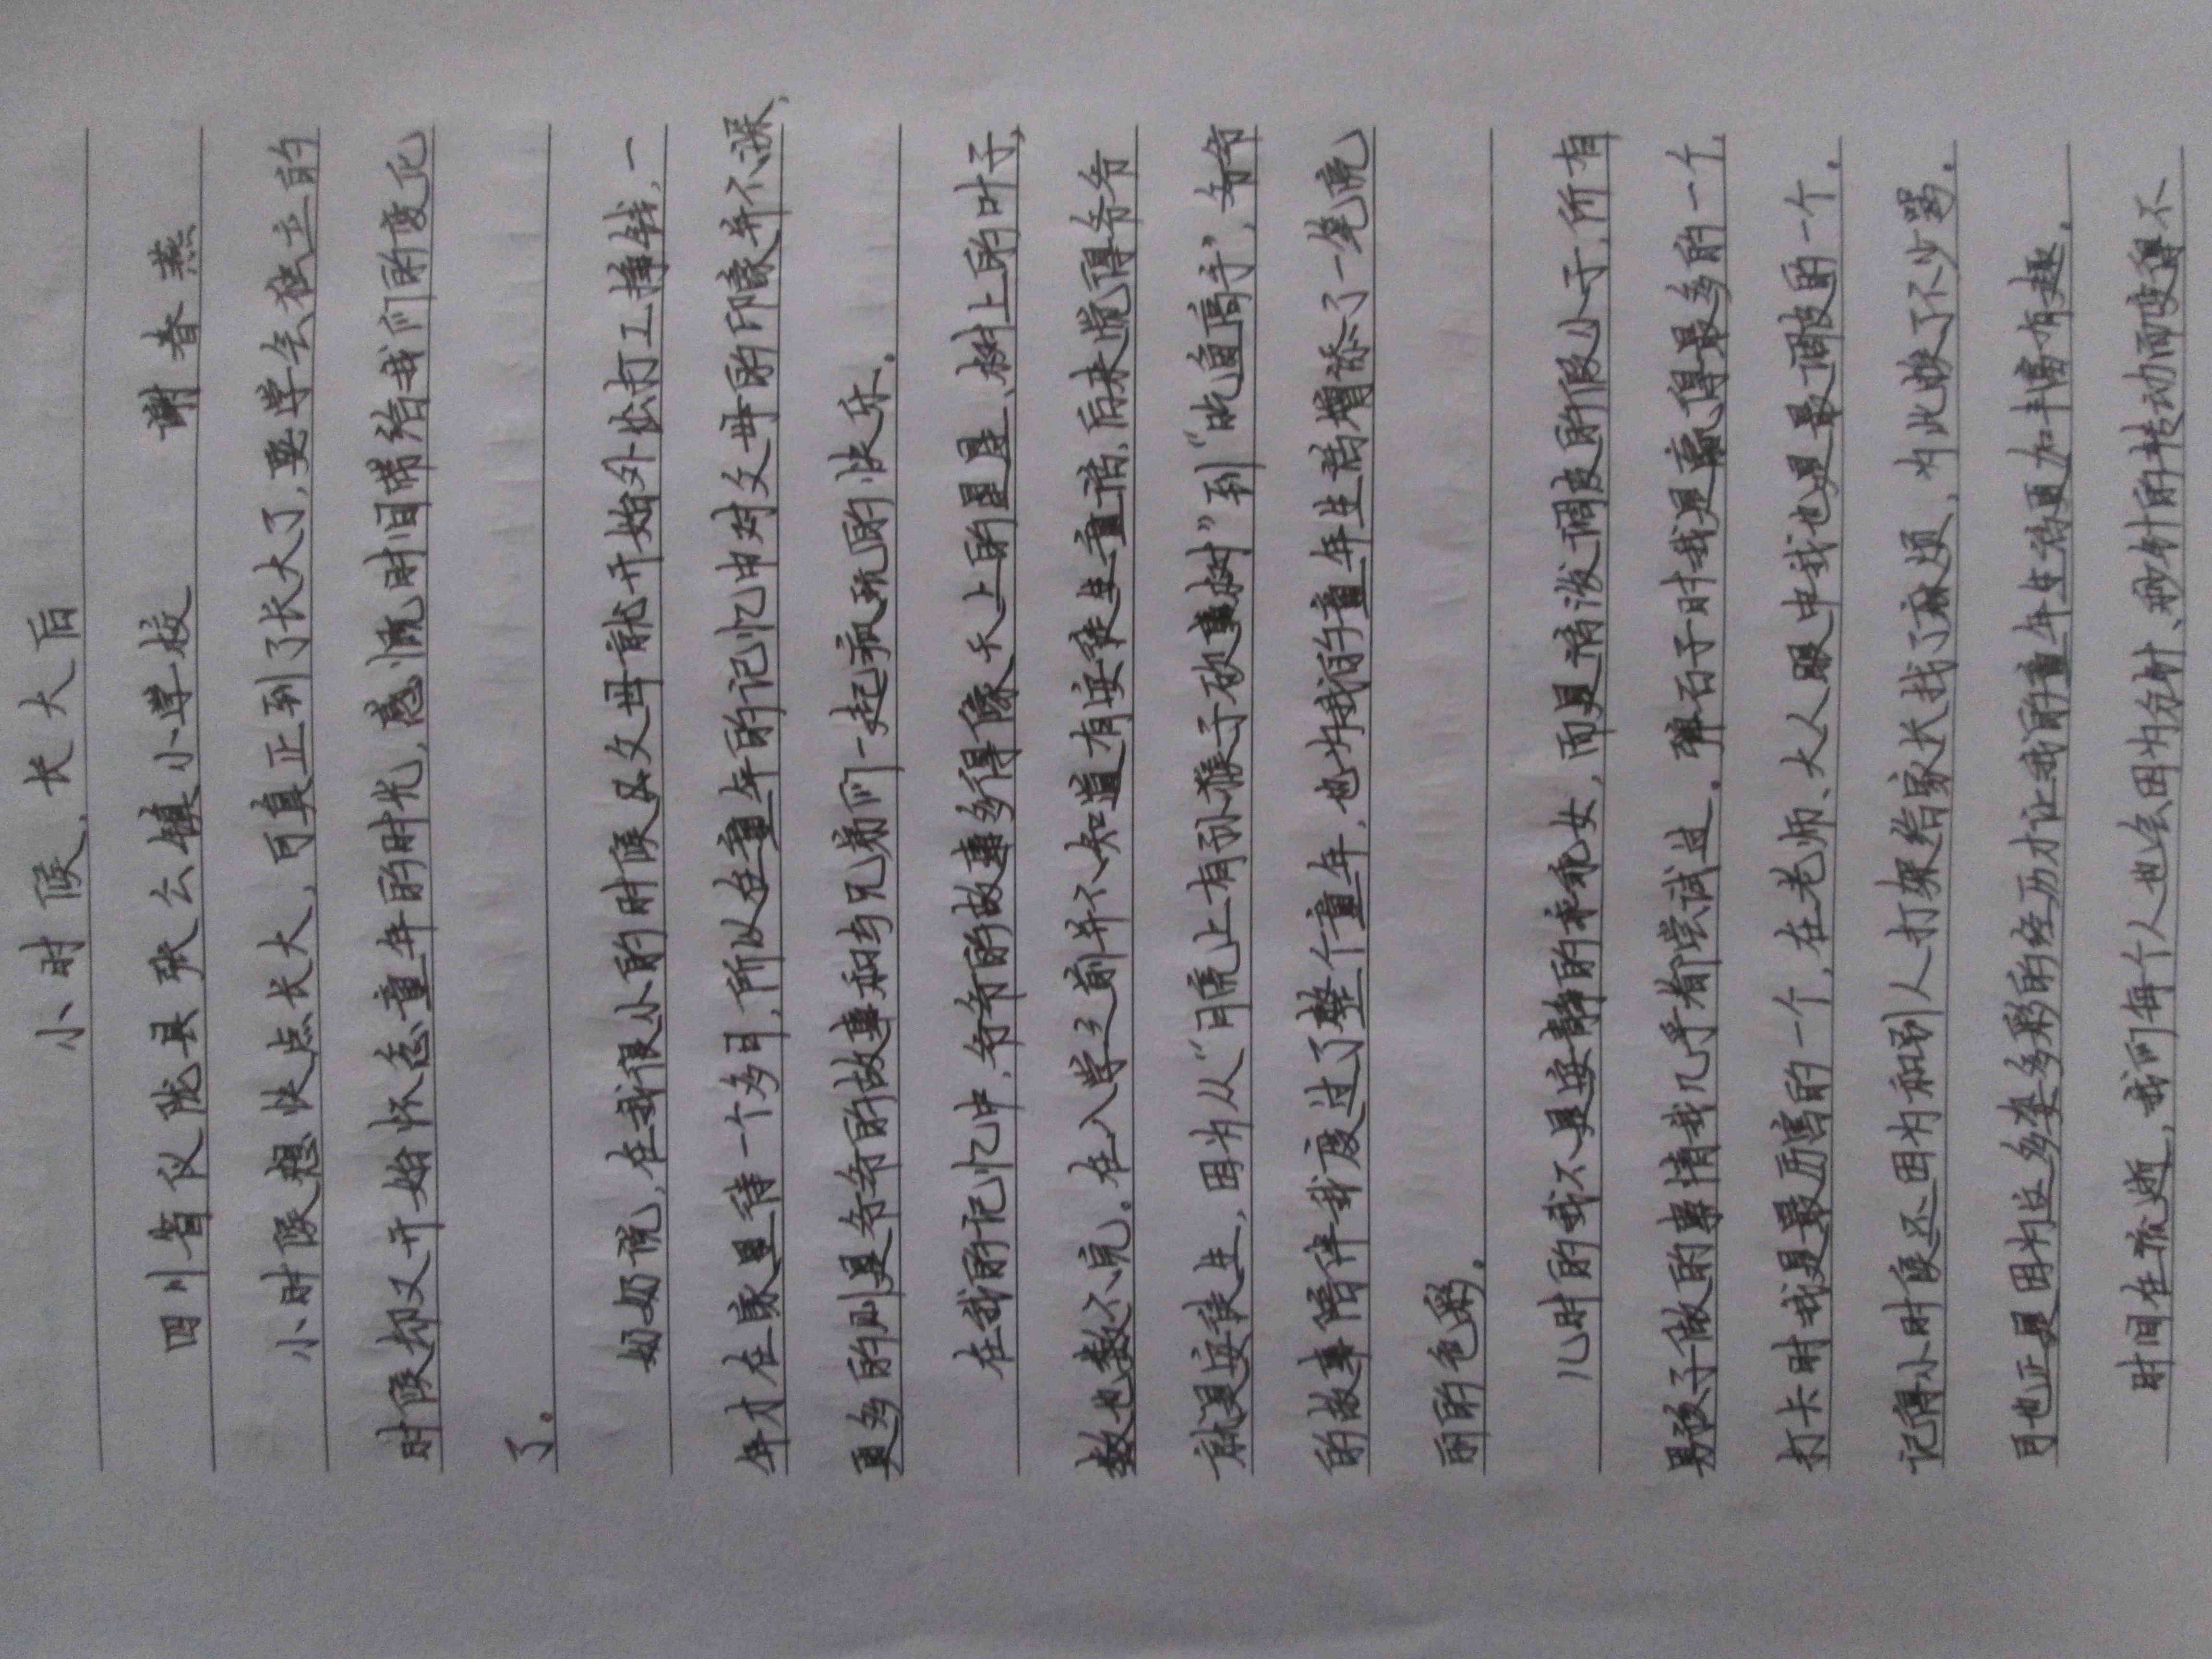 小时候，长大后
四川省仪陇县张公镇小学校 谢春燕
小时候想快点长大，可真正到了长大了，要学会独立的
时候却又开始怀念童年的时光，感慨时间带给我们的变化
了。
奶奶说，在我很小的时候父母就开始外出打工挣钱，一
年才在家里待一个多月，所以在童年的记忆中对父母的印象并不深，
更多的则是爷爷的故事和与兄弟们一起疯玩的快乐。
在我的记忆中，爷爷的故事多得像天上的星星、树上的叶子，
数也数不完。在入学之前并不知道有安徒生童话，后来觉得爷爷
就是安徒生，因为从“月亮上有孙猴子砍事树”到“吃鱼高手”，爷爷
的故事陪伴我度过了整个童年，也为我的童年生活增添了一笔亮
丽的色彩。
儿时的我不是安静的乖乖女，而是活泼调皮的假小子，所有
男孩子做的事情我几乎都尝试过。弹石子时我是赢得最多的一个，
打卡时我是最厉害的一个，在老师、大人眼中我也是最调皮的一个。
记得小时候还因为和别人打架给家长找了麻烦，为此挨了不少骂。
可也正是因为这多姿多彩的经历才让我的童年生活更加丰富有趣。
时间在流逝，我们每个人也会因为分针、秒针的转动而变得不